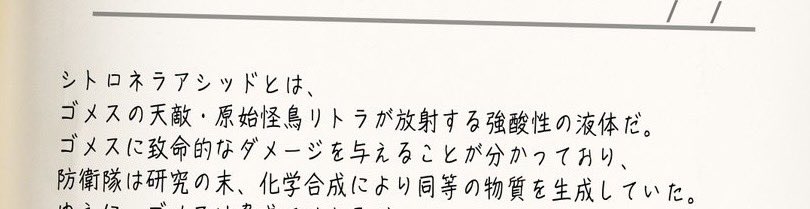 シトロネラアシッドとは、
ゴメスの天敵・原始怪鳥リトラが放射する強酸性の液体だ。
ゴメスに致命的なダメージを与えることが分かっており、
防衛隊は研究の末、化学合成により同等の物質を生成していた。